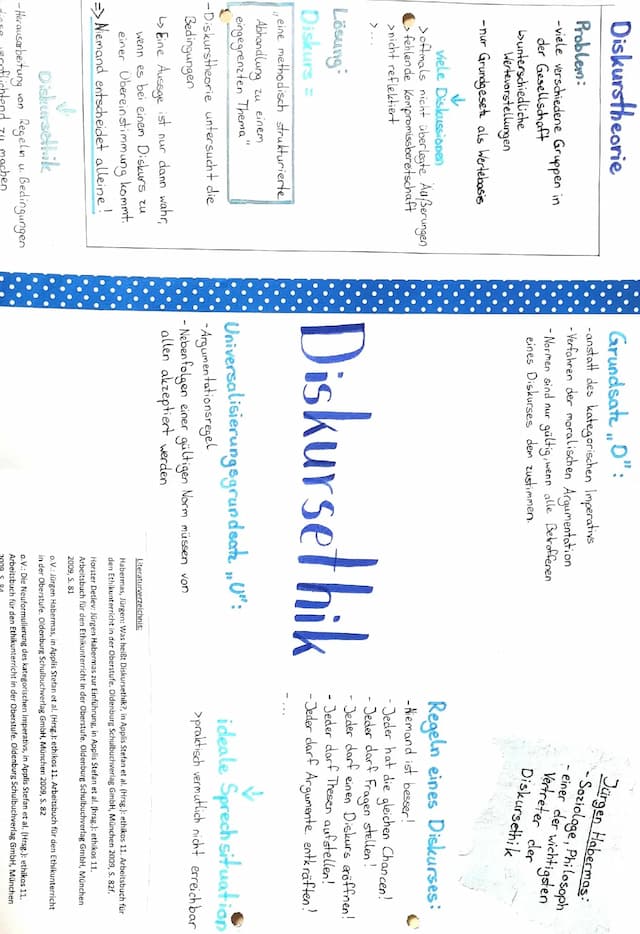 Diskurstheorie
Problem:
-viele verschiedene Gruppen in
der Gesellschaft
↳unterschiedliche
Wertevorstellungen
-nur Grundgesetz als Wertebasis
viele Diskussionen
>oftmals nicht überlegte Äußerungen
>fehlende Kompromissbereitschaft
>nicht reflektiert
>...
Lösung:
Diskurs =
„eine methodisch strukturierte
Abhandlung zu einem
eingegrenzten Thema“
-Diskurstheorie untersucht die
Bedingungen
↳Eine Aussage ist nur dann wahr,
wenn es bei einem Diskurs zu
einer Übereinstimmung kommt.
=> Niemand entscheidet alleine!
Diskursethik
-Herausarbeitung von Regeln u. Bedingungen
diese verpflichtend zu machen
Diskursethik
Grundsatz „D“:
-anstatt des kategorischen Imperativs
-Verfahren der moralischen Argumentation
-Normen sind nur gültig, wenn alle Betroffenen
eines Diskurses dem zustimmen.
Universalisierungsgrundsatz „U“:
-Argumentationsregel
-Nebenfolgen einer gültigen Norm müssen von
allen akzeptiert werden
Jürgen Habermas:
-Soziologe, Philosoph
-einer der wichtigsten
Vertreter der
Diskursethik
Regeln eines Diskurses:
-Niemand ist besser!
-Jeder hat die gleichen Chancen!
-Jeder darf Fragen stellen!
-Jeder darf einen Diskurs eröffnen!
-Jeder darf Thesen aufstellen!
-Jeder darf Argumente entkräften!
-...
ideale Sprechsituation
>praktisch vermutlich nicht erreichbar
Literaturverzeichnis:
Habermas, Jürgen: Was heißt Diskursethik?, in Applis Stefan et al. (Hrsg.): ethikos 11. Arbeitsbuch für
den Ethikunterricht in der Oberstufe. Oldenburg Schulbuchverlag GmbH, München 2009, S. 82f.
Horster Detlev: Jürgen Habermas zur Einführung, in Applis Stefan et al. (Hrsg.): ethikos 11.
Arbeitsbuch für den Ethikunterricht in der Oberstufe. Oldenburg Schulbuchverlag GmbH, München
2009, S. 81
o.V.: Jürgen Habermas, in Applis Stefan et al. (Hrsg.): ethikos 11. Arbeitsbuch für den Ethikunterricht
in der Oberstufe. Oldenburg Schulbuchverlag GmbH, München 2009, S. 82
o.V.: Die Neuformulierung des kategorischen Imperativs, in Applis Stefan et al. (Hrsg.): ethikos 11.
Arbeitsbuch für den Ethikunterricht in der Oberstufe. Oldenburg Schulbuchverlag GmbH, München
2009, S. 84